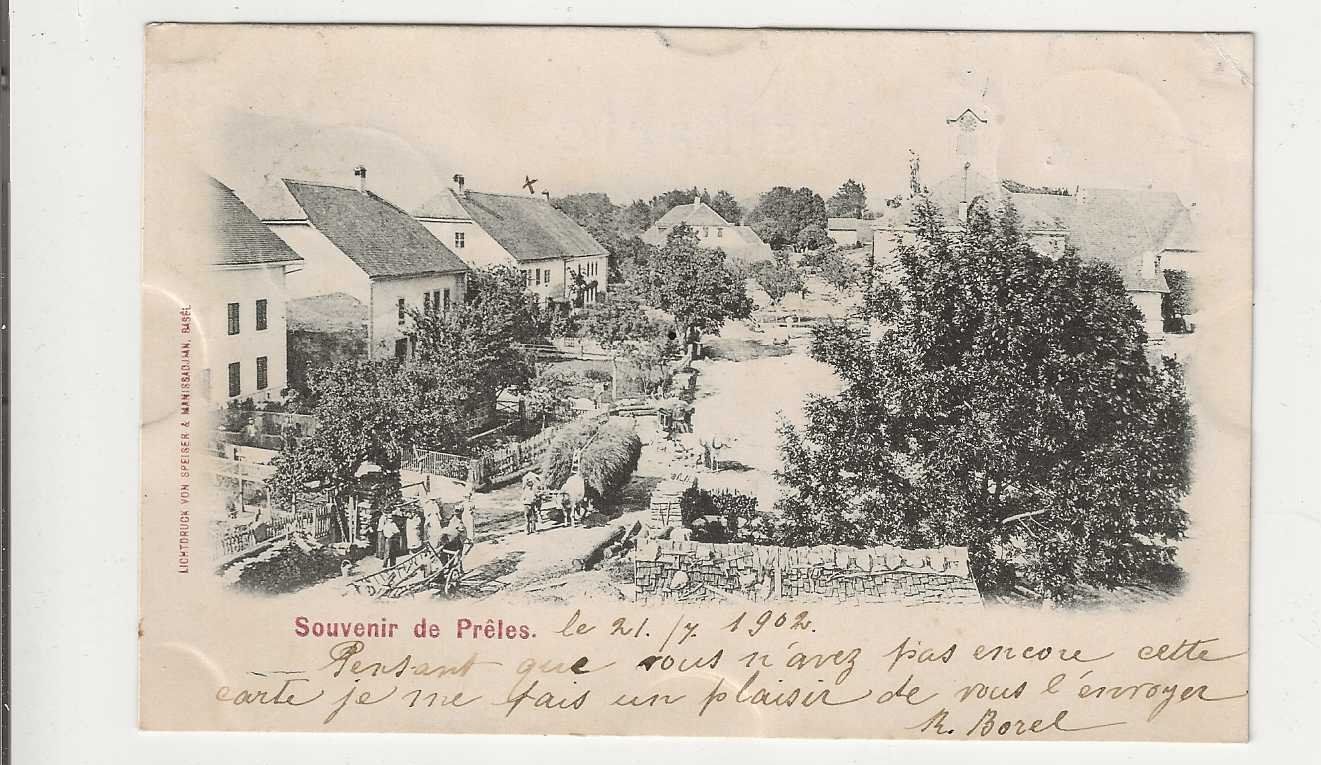 LICHTDRUCK VON SPEISER & MANISSADJIAN, BASEL
Souvenir de Prêles. le 21./7. 1902.
Pensant que vous n'avez pas encore cette
carte je me fais un plaisir de vous l'envoyer
R. Borel